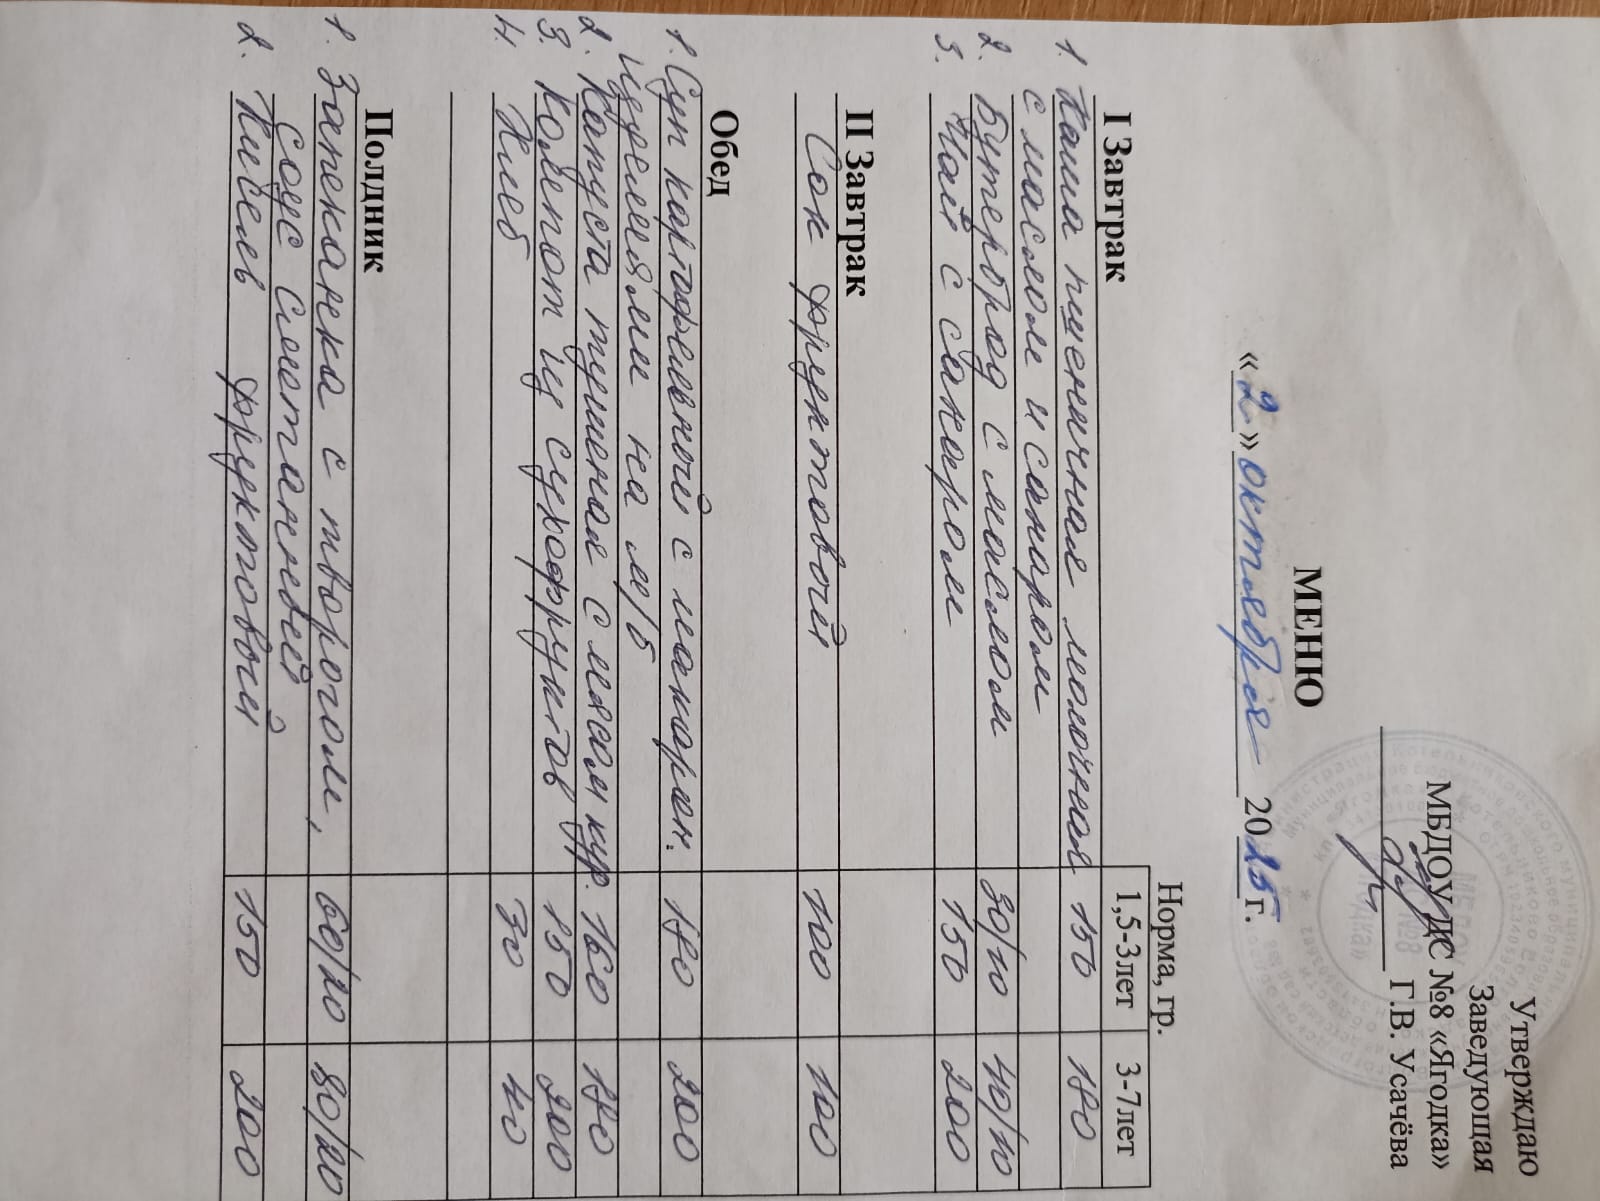 Утверждаю
Заведующая
МБДОУ ДС №8 «Ягодка»
Г.В. Усачёва
МЕНЮ
«2» октября 2025 г.
Норма, гр.
I Завтрак 1,5-3лет 3-7лет
1. Каша пшеничная молочная 150 180
с маслом и сахаром
2. Бутерброд с маслом 30/10 40/10
3. Чай с сахаром 150 200
II Завтрак
Сок фруктовый 100 100
Обед
1. Суп картофельный с макарон. 180 200
изделиями на м/б
2. Капуста тушеная с мясом кур. 160 180
3. Компот из сухофруктов 150 200
4. Хлеб 30 40
Полдник
1. Запеканка с творогом, 60/20 80/20
соус сметанный
2. Кисель фруктовый 150 200